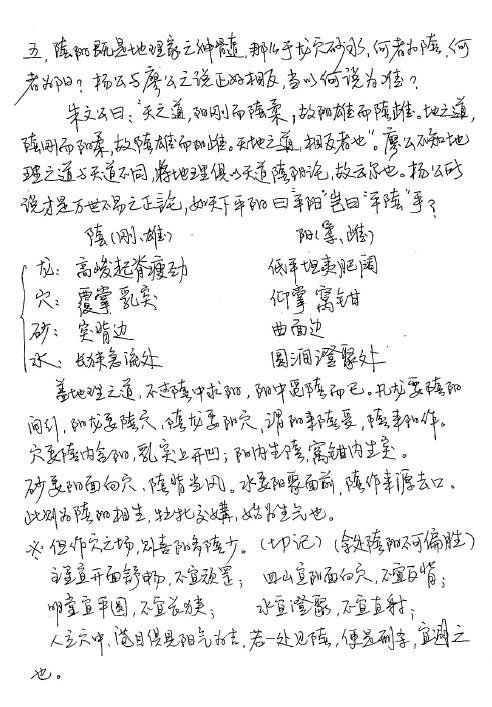 五，陰阳既是地理家之神髓，那么于龙穴砂水，何者为陰，何
者为阳？杨公与廖公之说正好相反，当以何说为准？
朱文公曰："天之道，阳刚而陰柔，故阳雄而陰雌。地之道，
陰刚而阳柔，故陰雄而阳雌。天地之道，相反者也"。廖公不知地
理之道与天道不同，将地理俱以天道陰阳论，故云尔也。杨公所
说才是万世不易之正论，如天下平阳曰"平阳"岂曰"平陰"乎？
陰(刚、雄) 阳(柔、雌)
龙：高峻起脊瘦劲 低平坦夷肥阔
穴：覆掌乳突 仰掌窩钳
砂：突背边 曲面边
水：长狭急流处 圆润澄聚处
盖地理之道，不过陰中求阳，阳中觅陰而已。凡龙要陰阳
间行，阳龙要陰穴，陰龙要阳穴，谓阳来陰受，陰来阳作。
穴要陰内含阳，乳突上开凹；阳内生陰，窩钳内生突。
砂要阳面向穴，陰背当风。水要阳聚面前，陰作来源去口。
此则为陰阳相生，牡牝交媾，始为生气也。
※但作穴之场，则喜阳多陰少。(切记) (余处陰阳不可偏胜)
主星宜开面舒畅，不宜顽罡； 四山宜阳面向穴，不宜反背；
明堂宜平圆，不宜长狭； 水宜澄聚，不宜直射；
人立穴中，满目俱是阳气为吉，若一处见陰，便是刑害，宜避之
也。